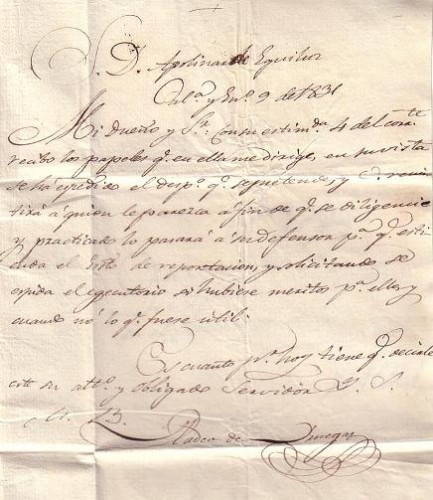 S. D. Apolinar de Eguiluz
Cal.ª y En.º 9 de 1831
Mi Dueño y S.r Con su estim.da 4 del corr.te
recibo los papeles q.e en ella me dirige, en su vista
se há expedido el desp.º q.e se pretende, y V. remi
tirá á quien le parezca á fin de q.e se diligencie
y practicado lo pasará á su defensor p.a q.e esti
enda el de reportacion, y solicitando se
espida el egecutorio si hubiere meritos p.a ello, y
cuando nó lo q.e fuere util.
Es cuanto p.r hoy tiene q.e decirle
este su att.º y obligado Servidor Q. S.
M. B.
Tadeo de